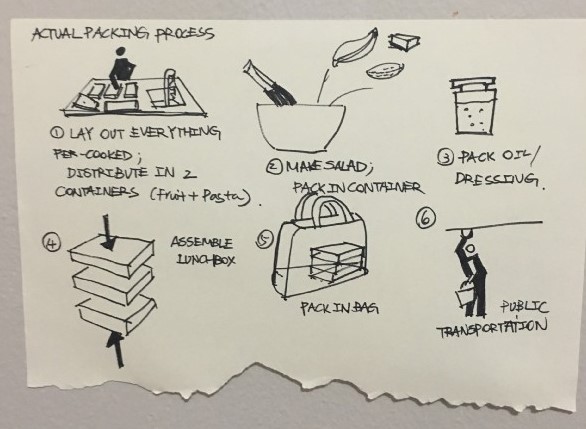 ACTUAL PACKING PROCESS
① LAY OUT EVERYTHING
PER-COOKED;
DISTRIBUTE IN 2
CONTAINERS (Fruit + Pasta).
② MAKE SALAD;
PACK IN CONTAINER
③ PACK OIL/
DRESSING.
④ ASSEMBLE
LUNCHBOX
⑤
PACK IN BAG
⑥
PUBLIC
TRANSPORTATION